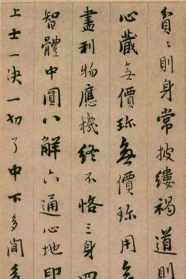 貧〻則身常披縷褐道則
心藏無價珍無價珍用無
盡利物應機終不恡三身四
智體中圓八解六通心地印
上士一決一切了中下多聞多